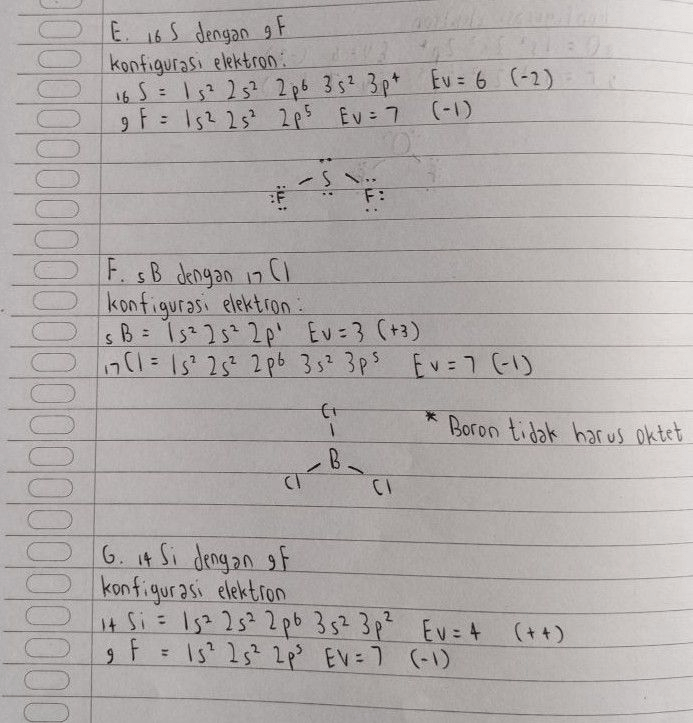 E. 16 S dengan 9 F
konfigurasi elektron:
16 S = 1s² 2s² 2p⁶ 3s² 3p⁴ Ev = 6 (-2)
9 F = 1s² 2s² 2p⁵ Ev = 7 (-1)
S
:F F:
F. 5B dengan 17 Cl
konfigurasi elektron:
5 B = 1s² 2s² 2p¹ Ev = 3 (+3)
17 Cl = 1s² 2s² 2p⁶ 3s² 3p⁵ Ev = 7 (-1)
Cl * Boron tidak harus oktet
B
Cl Cl
G. 14 Si dengan 9F
konfigurasi elektron
14 Si = 1s² 2s² 2p⁶ 3s² 3p² Ev = 4 (+4)
9 F = 1s² 2s² 2p⁵ Ev = 7 (-1)